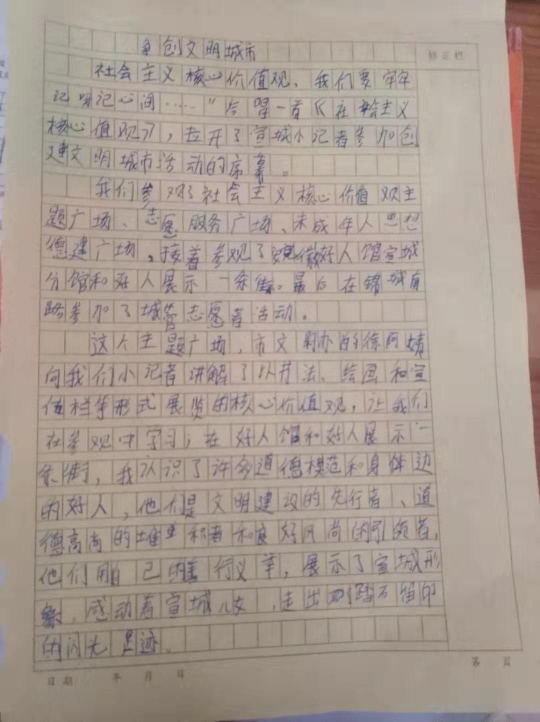 创文明城市
修正栏
社会主义核心价值观,我们要牢牢
记明记心间……"合唱一首《在社会主义
核心价值观》,拉开了宣城小记者参加创
建文明城市活动的序幕。
我们参观了社会主义核心价值观主
题广场、志愿服务广场、未成年人思想
德建广场,接着参观了安徽好人馆宣城
分馆和好人展示一条街。最后在锦城南
路参加了城管志愿者活动。
这个主题广场,市文明办的徐阿姨
向我们小记者讲解了以书法、绘画和宣
传栏等形式展览的核心价值观,让我们
在参观中学习;在好人馆和好人展示一
条街,我认识了许多道德模范和身体边
的好人,他们是文明建设的先行者、道
德高尚的和良好风尚的引领者,
他们用自己的,展示了宣城形
象,感动着宣城儿女,走出了踏石留印
的闪光足迹。
日期 年 月 日
第 页